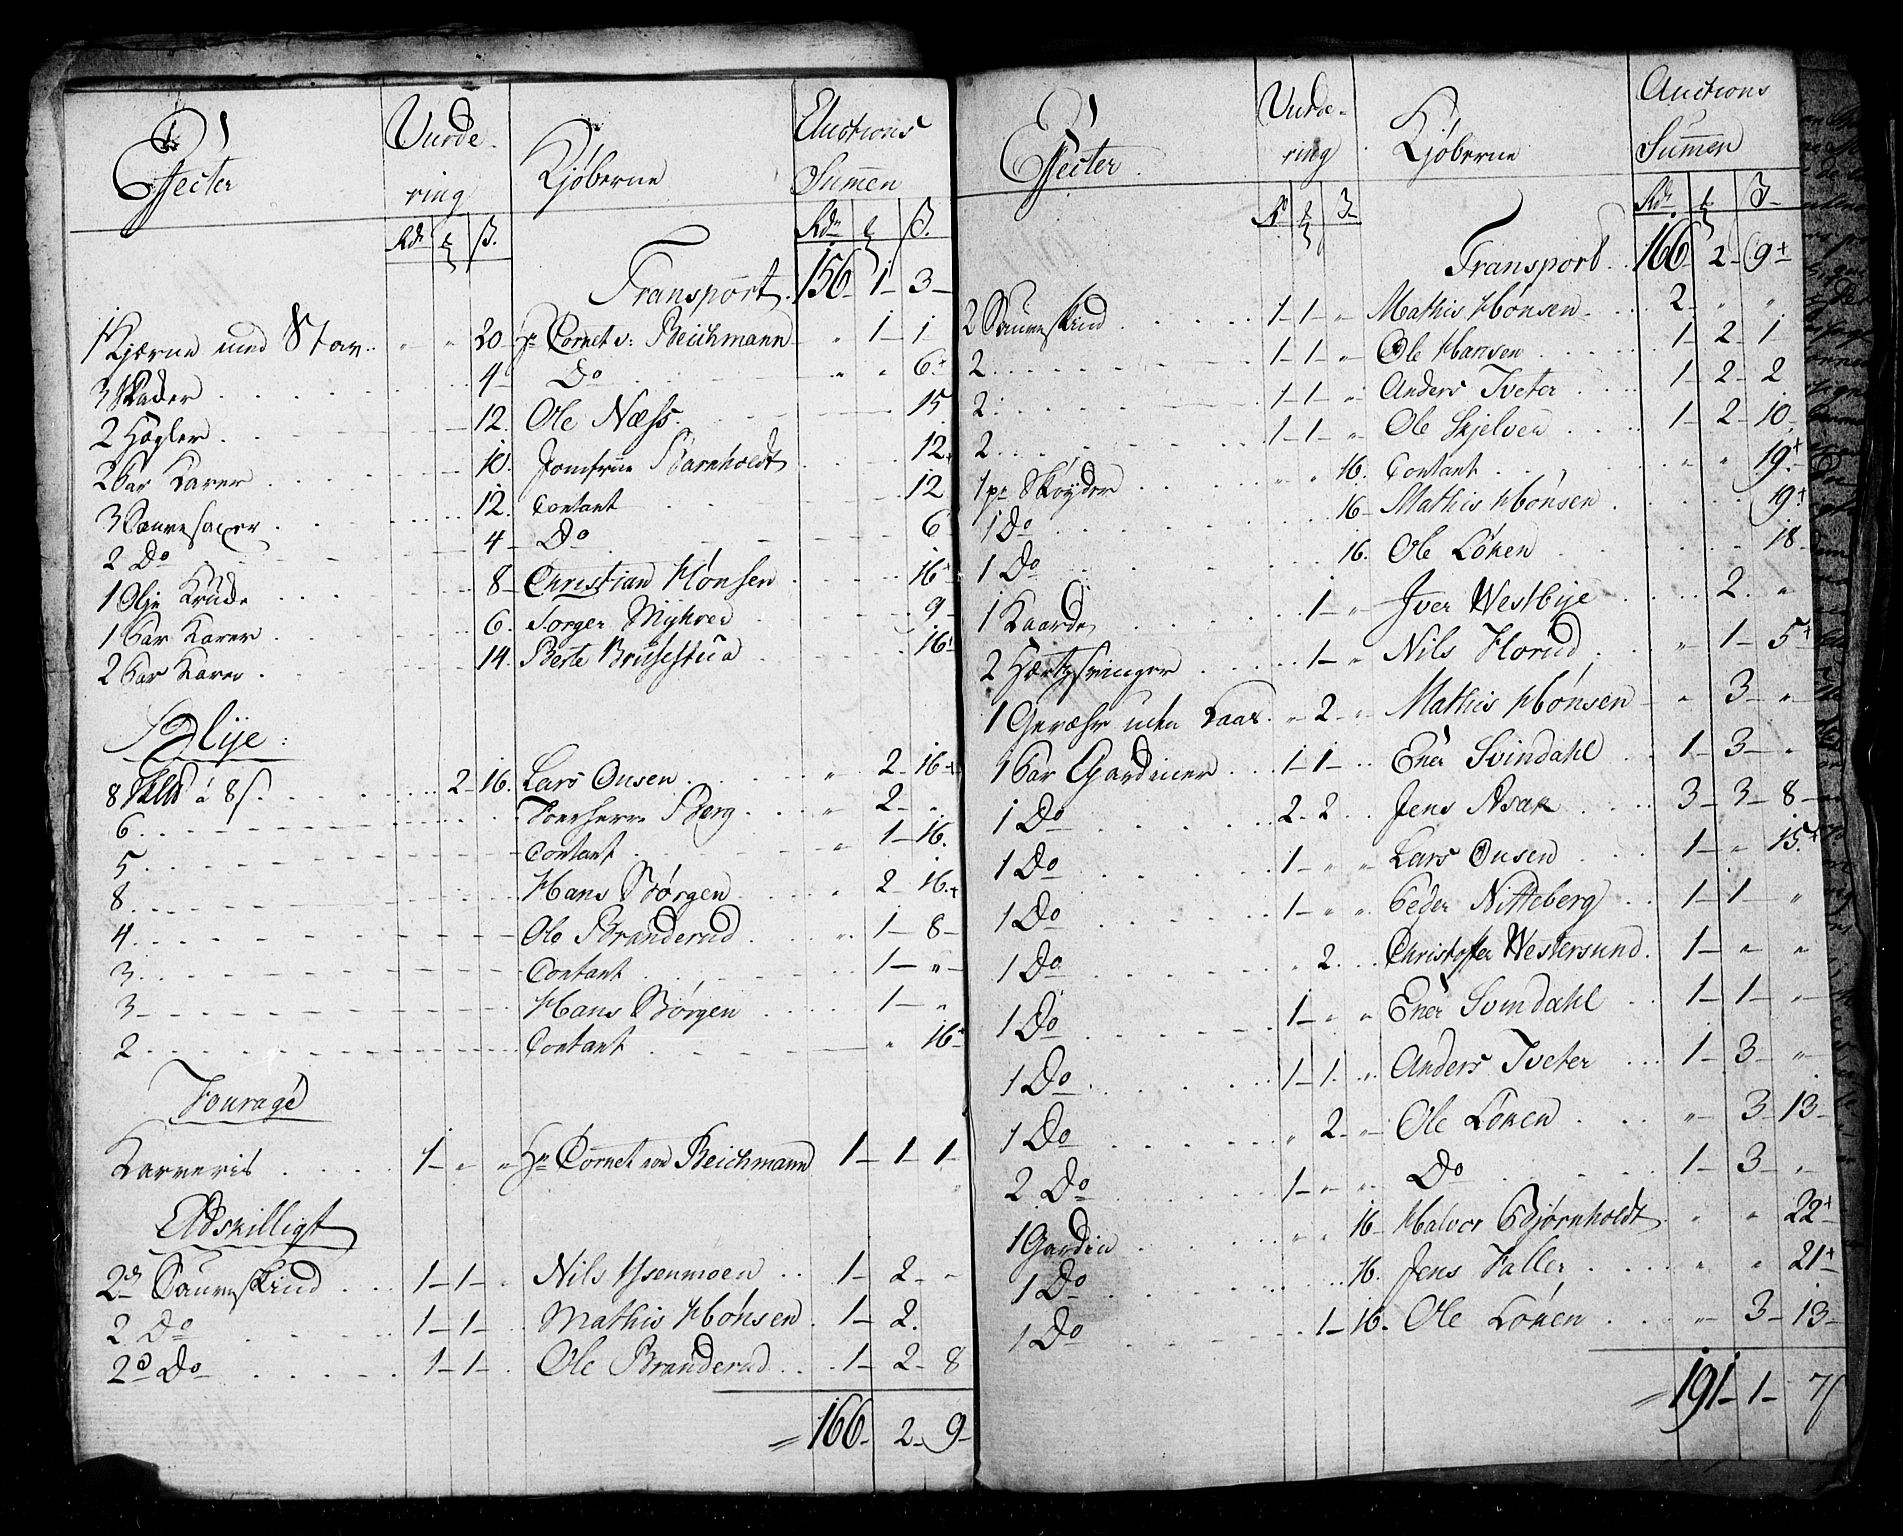 Effecter Vurde- Kjøberne Auctions
ring Summen
Rdr ß. Rdr ß.
Transport 156 1 3
1 Kjærne med Stav 20 Hr Cornet v: Beichmann 1 1
3 4 Do 6
2 Hegler 12 Ole Næss 15
2 Par Karer 10 Jomfrue Barnholdt 12
3 Sauesaxer 12 Contant 12
2 Do 4 Do 6
1 Olje Krukke 8 Christian Hønsen 16
1 Par Karer 6 Torger Myhrer 9
2 Par Karer 14 Berte Brusestua 16
8 à 8 s. 2 16 Lars Onsen 2 16
6 Berg 2
5 Contant 1 16
8 Hans Børgen 2 16
4 Ole Branderud 1 8
3 Contant 1 "
3 Hans Børgen 1 "
2 Contant " 16
Fourage
1 " " Hr Cornet von Beichmann 1 1 1
Adskilligt
2de Saueskind 1 1 Nils Isenmoen 1 2 "
2 Do 1 1 Mathis Hønsen 1 2
2 Do 1 1 Ole Branderud 1 2 8
166 2 9
Effecter Vurde- Kjøberne Auctions
ring Summen
Rdr ß Rdr ß
Transport 166 2 9
2 Saueskind 1 1 " Mathis Hønsen 2 " "
2 1 1 " Ole Hansen 1 2 1
2 1 1 " Anders Tveter 1 2 2
2 1 1 " Ole Skjelven 1 2 10
1 pr Skøyder 16 Contant " " 19
1 Do 16 Mathis Hønsen 19
1 Do 16 Ole Løken 18
1 Kaarde 1 " Iver Westbye 2 "
2 1 " Nils Horud " 1 5
1 Geræhr uden Laas " 2 " Mathis Hønsen " 3 "
1 Par Gardiner 1 1 Ener Svindahl 1 3 "
1 Do 2 2 Jens Asak 3 3 8
1 Do 1 " " Lars Onsen 1 " 15
1 Do 1 " " Peder Nitteberg 1 1 "
1 Do " 2 Christoffer Westersund 1 " "
1 Do 1 " " Ener Svindahl 1 1 "
1 Do 1 1 " Anders Tveter 1 3 "
1 Do " 2 " Ole Løken " 3 13
2 Do 1 " " Do 1 3 "
1 Gardin " " 16 Halvor Bjørnholdt " " 22
1 Do 16 Jens Faller " " 21
1 Do 1 16 Ole Løken " 3 13
191 1 7